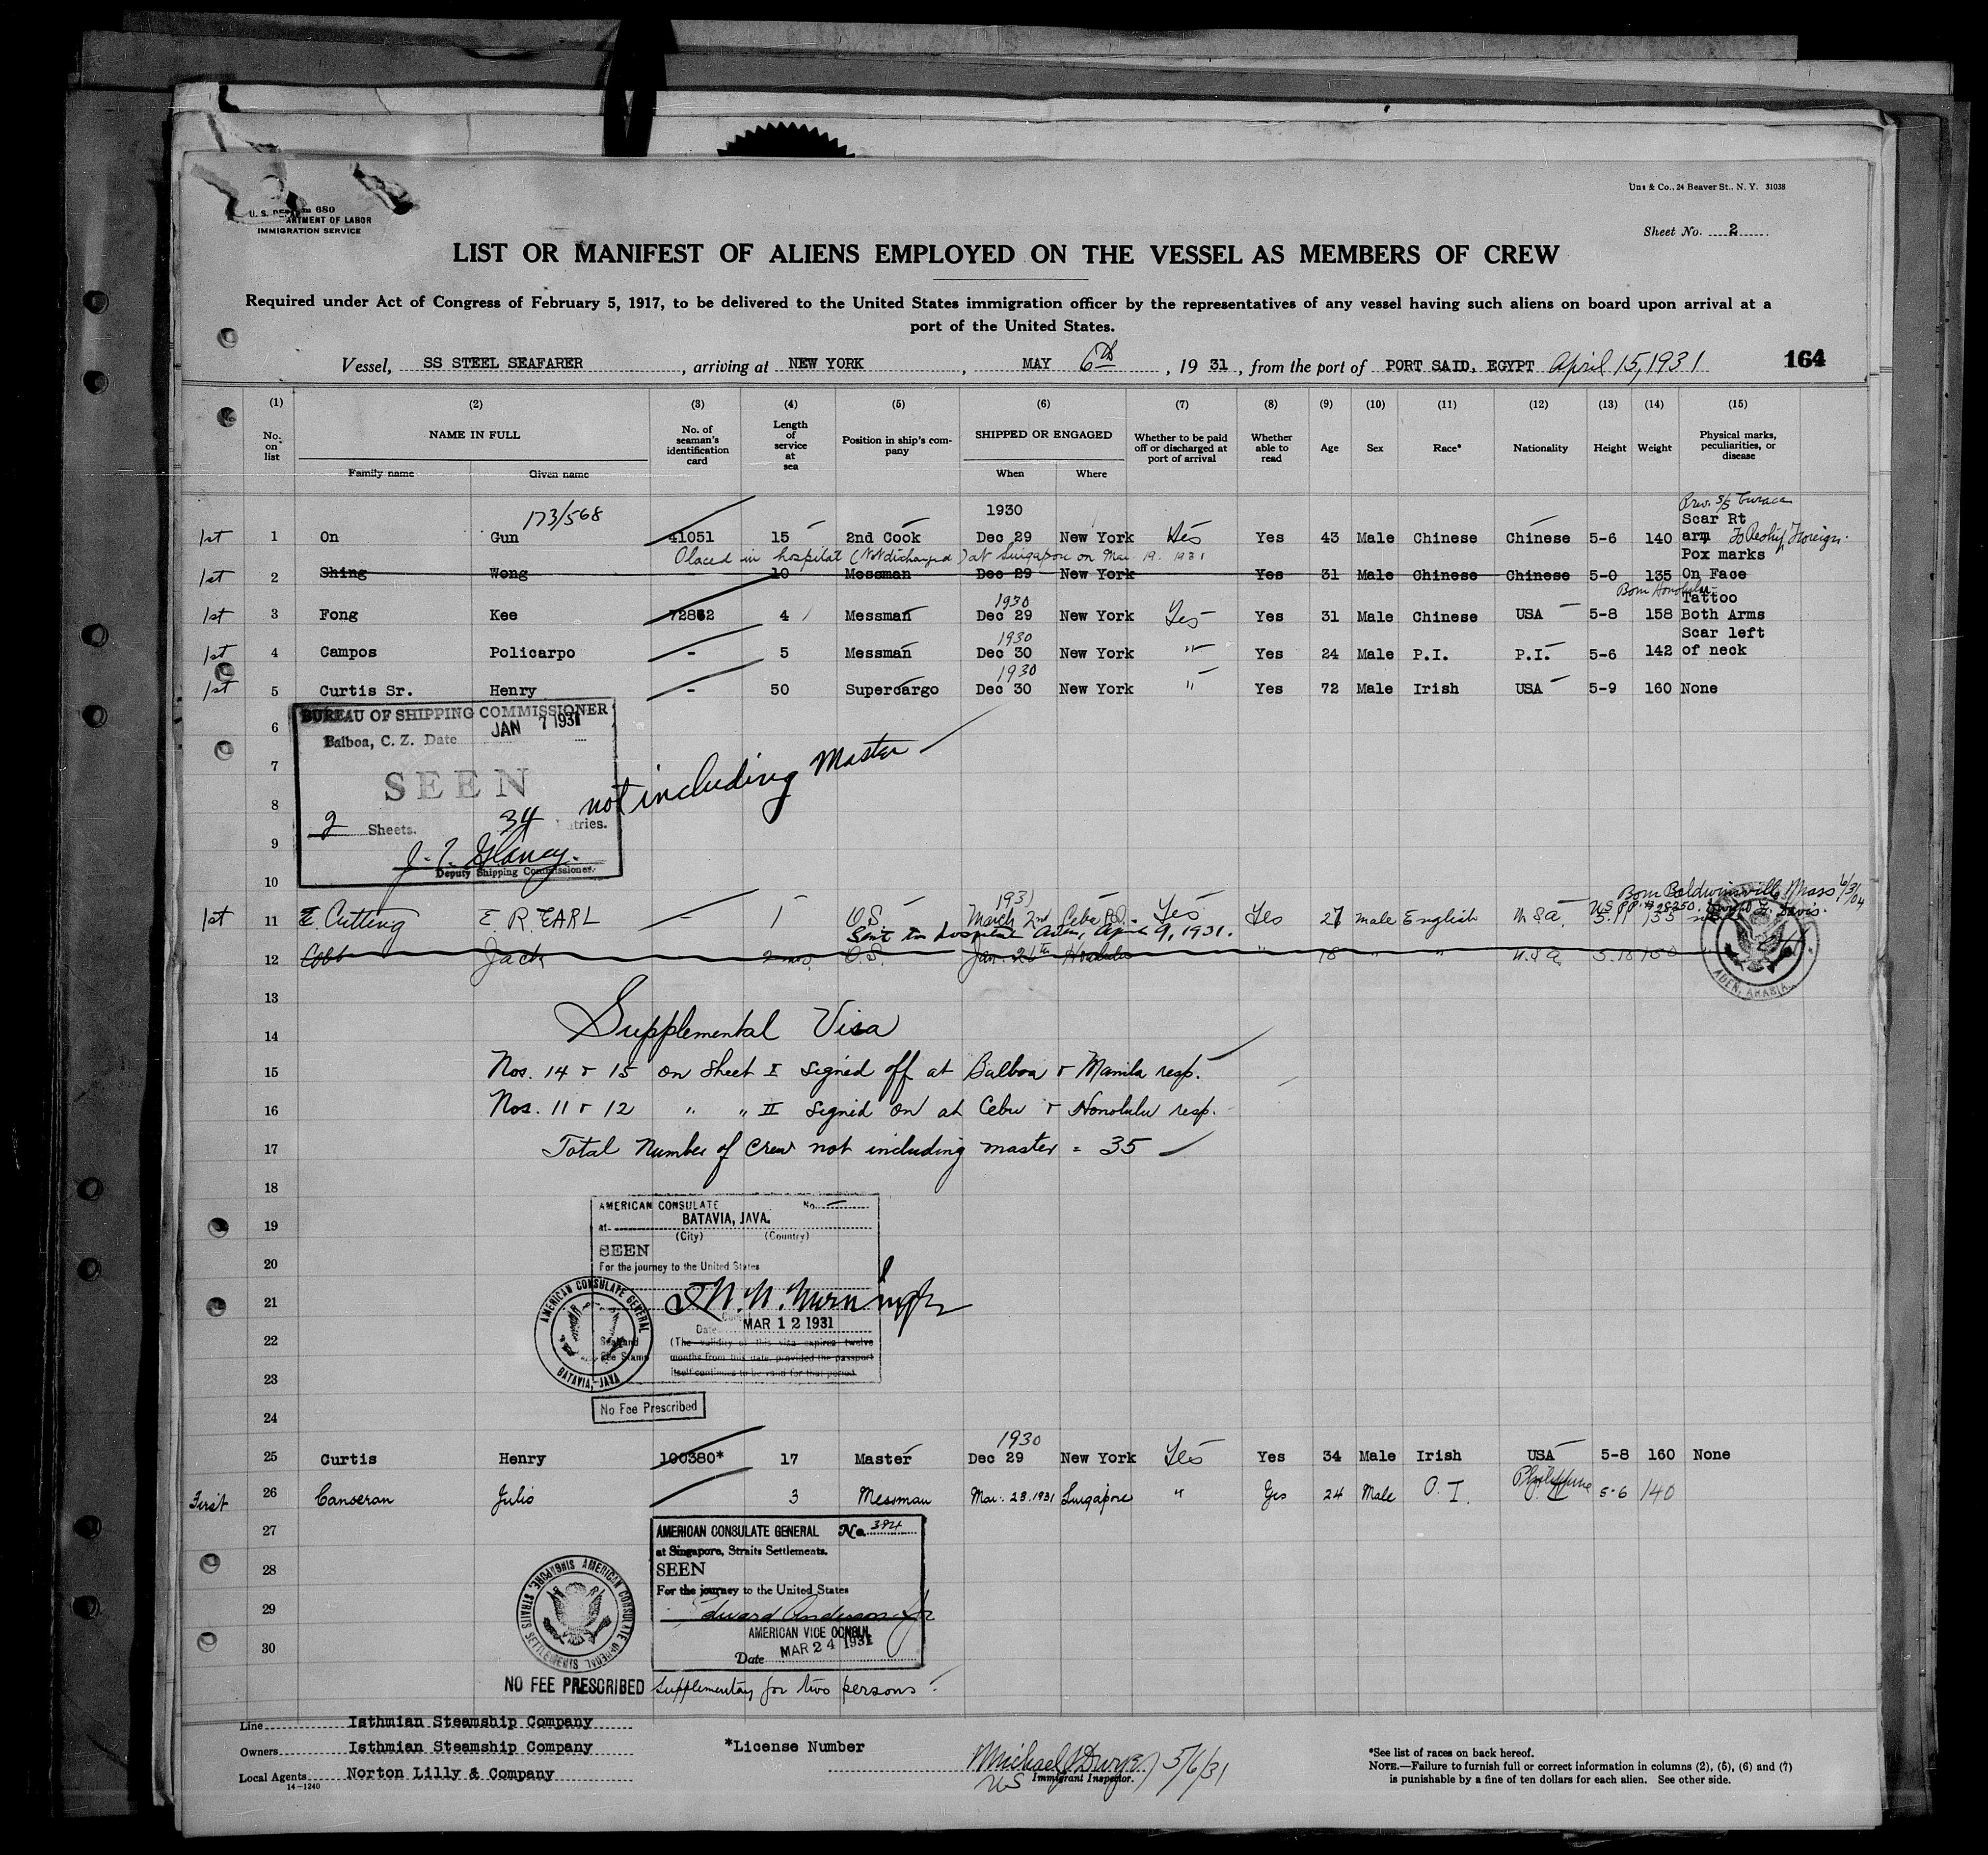 Uns & Co., 24 Beaver St., N. Y. 31038
680
U. S. DEPARTMENT OF LABOR
IMMIGRATION SERVICE
Sheet No. 2
LIST OR MANIFEST OF ALIENS EMPLOYED ON THE VESSEL AS MEMBERS OF CREW
Required under Act of Congress of February 5, 1917, to be delivered to the United States immigration officer by the representatives of any vessel having such aliens on board upon arrival at a
port of the United States.
Vessel, SS STEEL SEAFARER, arriving at NEW YORK, MAY 6th, 1931, from the port of PORT SAID, EGYPT April 15, 1931 164
(1) (2) (3) (4) (5) (6) (7) (8) (9) (10) (11) (12) (13) (14) (15)
No. on list NAME IN FULL No. of seaman's identification card Length of service at sea Position in ship's company SHIPPED OR ENGAGED Whether to be paid off or discharged at port of arrival Whether able to read Age Sex Race* Nationality Height Weight Physical marks, peculiarities, or disease
Family name Given name When Where
173/568 1930 Scar Rt
1st 1 On Gun 41051 15 2nd Cook Dec 29 New York Yes Yes 43 Male Chinese Chinese 5-6 140 arm To Reship Foreign.
Placed in hospital (Not discharged) at Singapore on Mar. 19. 1931 Pox marks
1st 2 Shing Wong - 10 Messman Dec 29 New York Yes 31 Male Chinese Chinese 5-0 135 On Face
Born Honolulu
1930 Tattoo
1st 3 Fong Kee 72862 4 Messman Dec 29 New York Yes Yes 31 Male Chinese USA 5-8 158 Both Arms
1930 Scar left
1st 4 Campos Policarpo - 5 Messman Dec 30 New York " Yes 24 Male P.I. P.I. 5-6 142 of neck
1930
1st 5 Curtis Sr. Henry - 50 Supercargo Dec 30 New York " Yes 72 Male Irish USA 5-9 160 None
6
BUREAU OF SHIPPING COMMISSIONER
Balboa, C. Z. Date JAN 7 1931
7
SEEN
not including Master
8
2 Sheets. 34 Entries.
9
Deputy Shipping Commissioner.
10
Born Baldwinsville Mass 6/3/04
1931
1st 11 Cutting E. R. EARL - 1 O.S. March 2nd Cebu P.I. Yes Yes 27 male English U.S.A. 5.11 135
Sent to hospital Aden, April 9, 1931.
12 Cobb Jack 2 mos. O.S. Jan. 26th Honolulu " 18 " " U.S.A. 5.10 150
ADEN, ARABIA
13
14 Supplemental Visa
15 Nos. 14 & 15 on Sheet I signed off at Balboa & Manila resp.
16 Nos. 11 & 12 " " II signed on at Cebu & Honolulu resp.
17 Total Number of Crew not including master = 35
18
AMERICAN CONSULATE No.
19 at BATAVIA, JAVA.
(City) (Country)
SEEN
20 For the journey to the United States
21 AMERICAN CONSULATE GENERAL
Date MAR 12 1931
22 Seal and (The validity of this visa expires twelve
Fee Stamp months from this date, provided the passport
23 BATAVIA, JAVA itself continues to be valid for that period.
24 No Fee Prescribed
1930
25 Curtis Henry 100380* 17 Master Dec 29 New York Yes Yes 34 Male Irish USA 5-8 160 None
Philippine
First 26 Canseran Julio 3 Messman Mar. 23. 1931 Singapore " Yes 24 Male P.I. 5-6 140
27 AMERICAN CONSULATE GENERAL No. 384
at Singapore, Straits Settlements.
28 SEEN
AMERICAN CONSULATE GENERAL SINGAPORE, STRAITS SETTLEMENTS
For the journey to the United States
29 Edward Anderson Jr
AMERICAN VICE CONSUL
30 Date MAR 24 1931
NO FEE PRESCRIBED Supplementary for two persons.
Line Isthmian Steamship Company
Owners Isthmian Steamship Company
Local Agents Norton Lilly & Company
14—1240
*License Number
5/6/31
US Immigrant Inspector.
*See list of races on back hereof.
NOTE.—Failure to furnish full or correct information in columns (2), (5), (6) and (7)
is punishable by a fine of ten dollars for each alien. See other side.